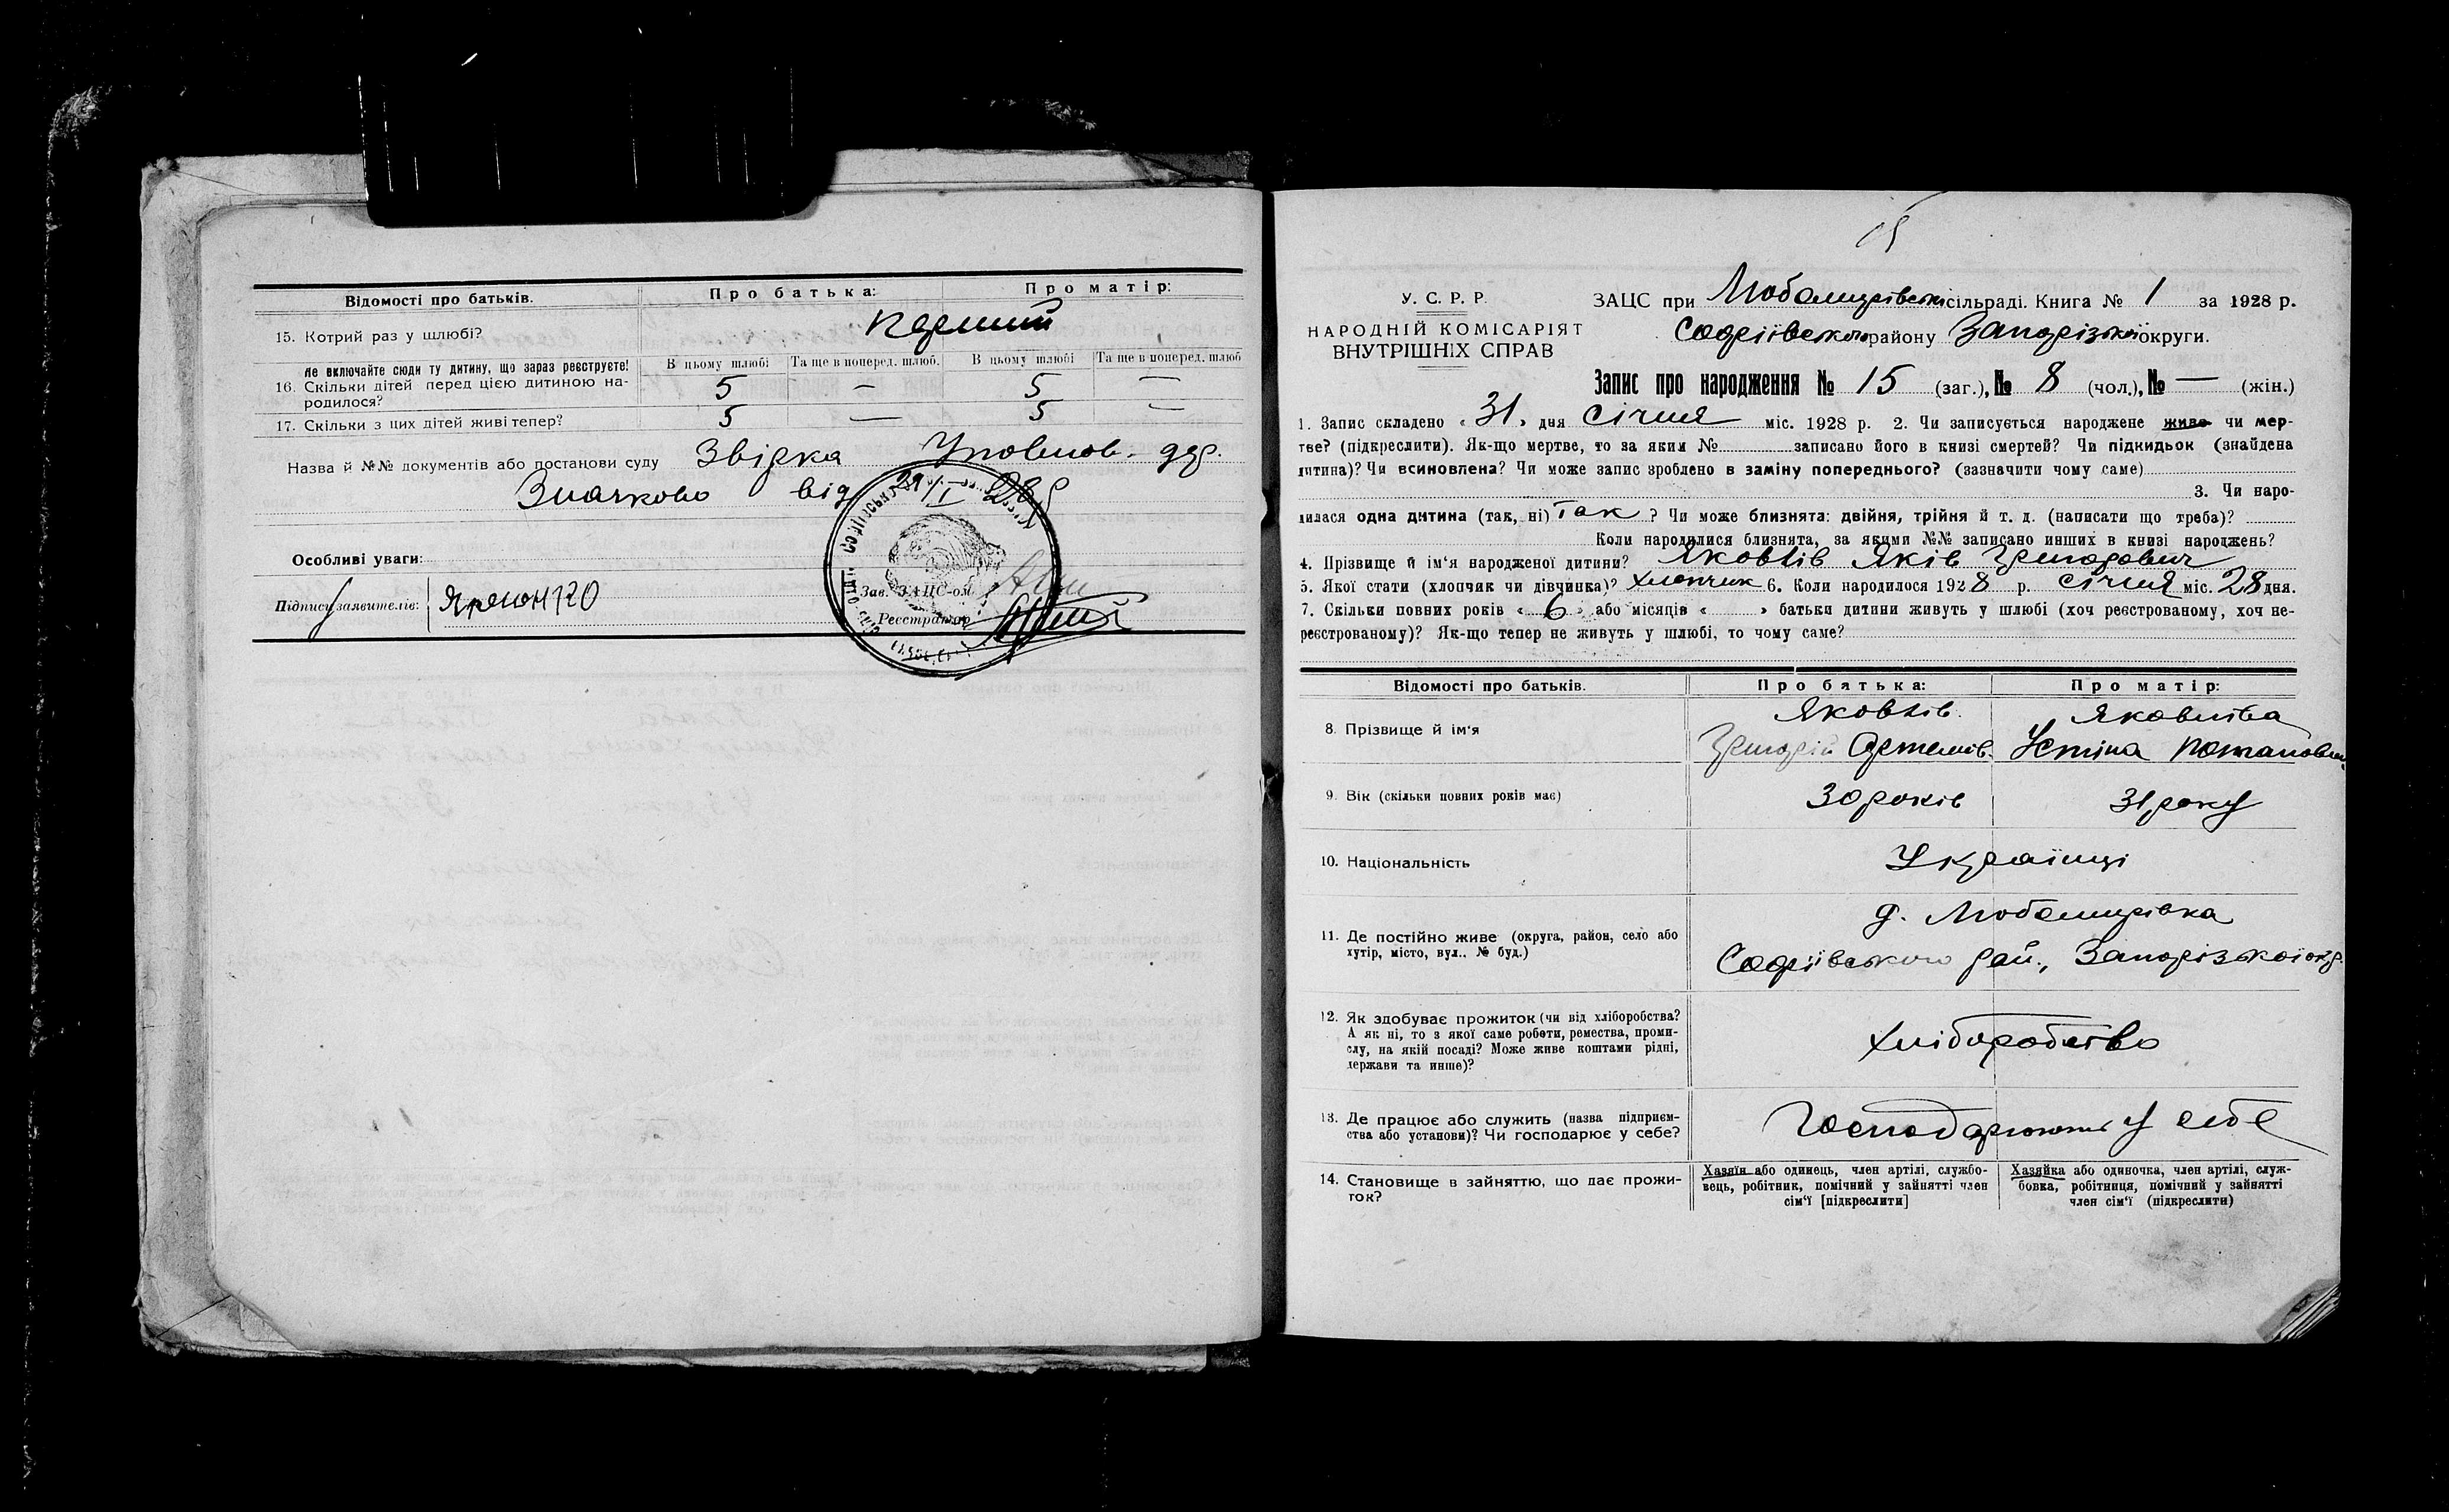 Відомості про батьків. Про батька: Про матір:
15. Котрий раз у шлюбі? Перший
Не включайте сюди ту дитину, що зараз реєструєте! В цьому шлюбі Та ще в поперед. шлюб. В цьому шлюбі Та ще в поперед. шлюб
16. Скільки дітей перед цією дитиною на- 5 — 5 —
родилося?
17. Скільки з цих дітей живі тепер? 5 — 5 —
Назва й №№ документів або постанови суду Звірка Уповнов.
від 29/I 28 р
Особливі уваги:
Підписи заявителів:
Зав. ЗАЦС-ом
Реєстратор
15
У. С. Р. Р.
НАРОДНІЙ КОМІСАРІЯТ
ВНУТРІШНІХ СПРАВ
ЗАЦС при Любомирівській сільраді. Книга № 1 за 1928 р.
Софіївського району Запорізької округи.
Запис про народження № 15 (заг.), № 8 (чол.), № — (жін.)
1. Запис складено « 31 » дня січня міс. 1928 р. 2. Чи записується народжене живе чи мер-
тве? (підкреслити). Як-що мертве, то за яким № записано його в книзі смертей? Чи підкидьок (знайдена
дитина)? Чи всиновлена? Чи може запис зроблено в заміну попереднього? (зазначити чому саме)
3. Чи наро-
дилася одна дитина (так, ні) Так ? Чи може близнята: двійня, трійня й т. д. (написати що треба)?
Коли народилися близнята, за якими №№ записано инших в книзі народжень?
4. Прізвище й ім'я народженої дитини? Яковлів Яків Григорович
5. Якої стати (хлопчик чи дівчинка)? хлопчик 6. Коли народилося 1928 р. січня міс. 28 дня.
7. Скільки повних років « 6 » або місяців « » батьки дитини живуть у шлюбі (хоч реєстрованому, хоч не-
реєстрованому)? Як-що тепер не живуть у шлюбі, то чому саме?
Відомості про батьків. Про батька: Про матір:
8. Прізвище й ім'я Яковлів. Яковліва
Григорій Артемів. Устіна Потапов
9. Вік (скільки повних років має) 30 років 31 року
10. Національність Українці
11. Де постійно живе (округа, район, село або
хутір, місто, вул.. № буд.)
д. Любомирівка
Софіївського рай., Запорізької окр.
12. Як здобуває прожиток (чи від хліборобства?
А як ні, то з якої саме роботи, ремества, проми-
слу, на якій посаді? Може живе коштами рідні,
держави та инше)?
хліборобство
13. Де працює або служить (назва підприєм-
ства або установи)? Чи господарює у себе?
Господарюють у себе
14. Становище в зайняттю, що дає прожи-
ток?
Хазяїн або одинець, член артілі, службо-
вець, робітник, помічний у зайнятті член
сім'ї [підкреслити]
Хазяйка або одиночка, член артілі, служ-
бовка, робітниця, помічний у зайнятті
член сім'ї (підкреслити)